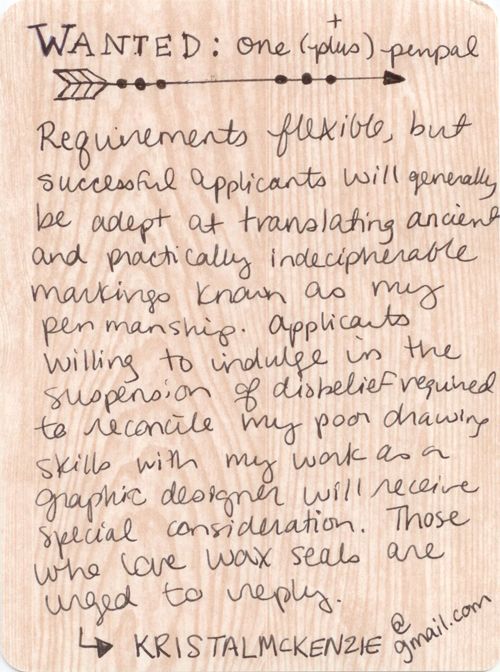 WANTED: one (+plus) penpal
Requirements flexible, but
successful applicants will generally
be adept at translating ancient
and practically indecipherable
markings known as my
penmanship. Applicants
willing to indulge in the
suspension of disbelief required
to reconcile my poor drawing
skills with my work as a
graphic designer will receive
special consideration. Those
who love wax seals are
urged to reply.
↳ KRISTALMCKENZIE @
gmail.com